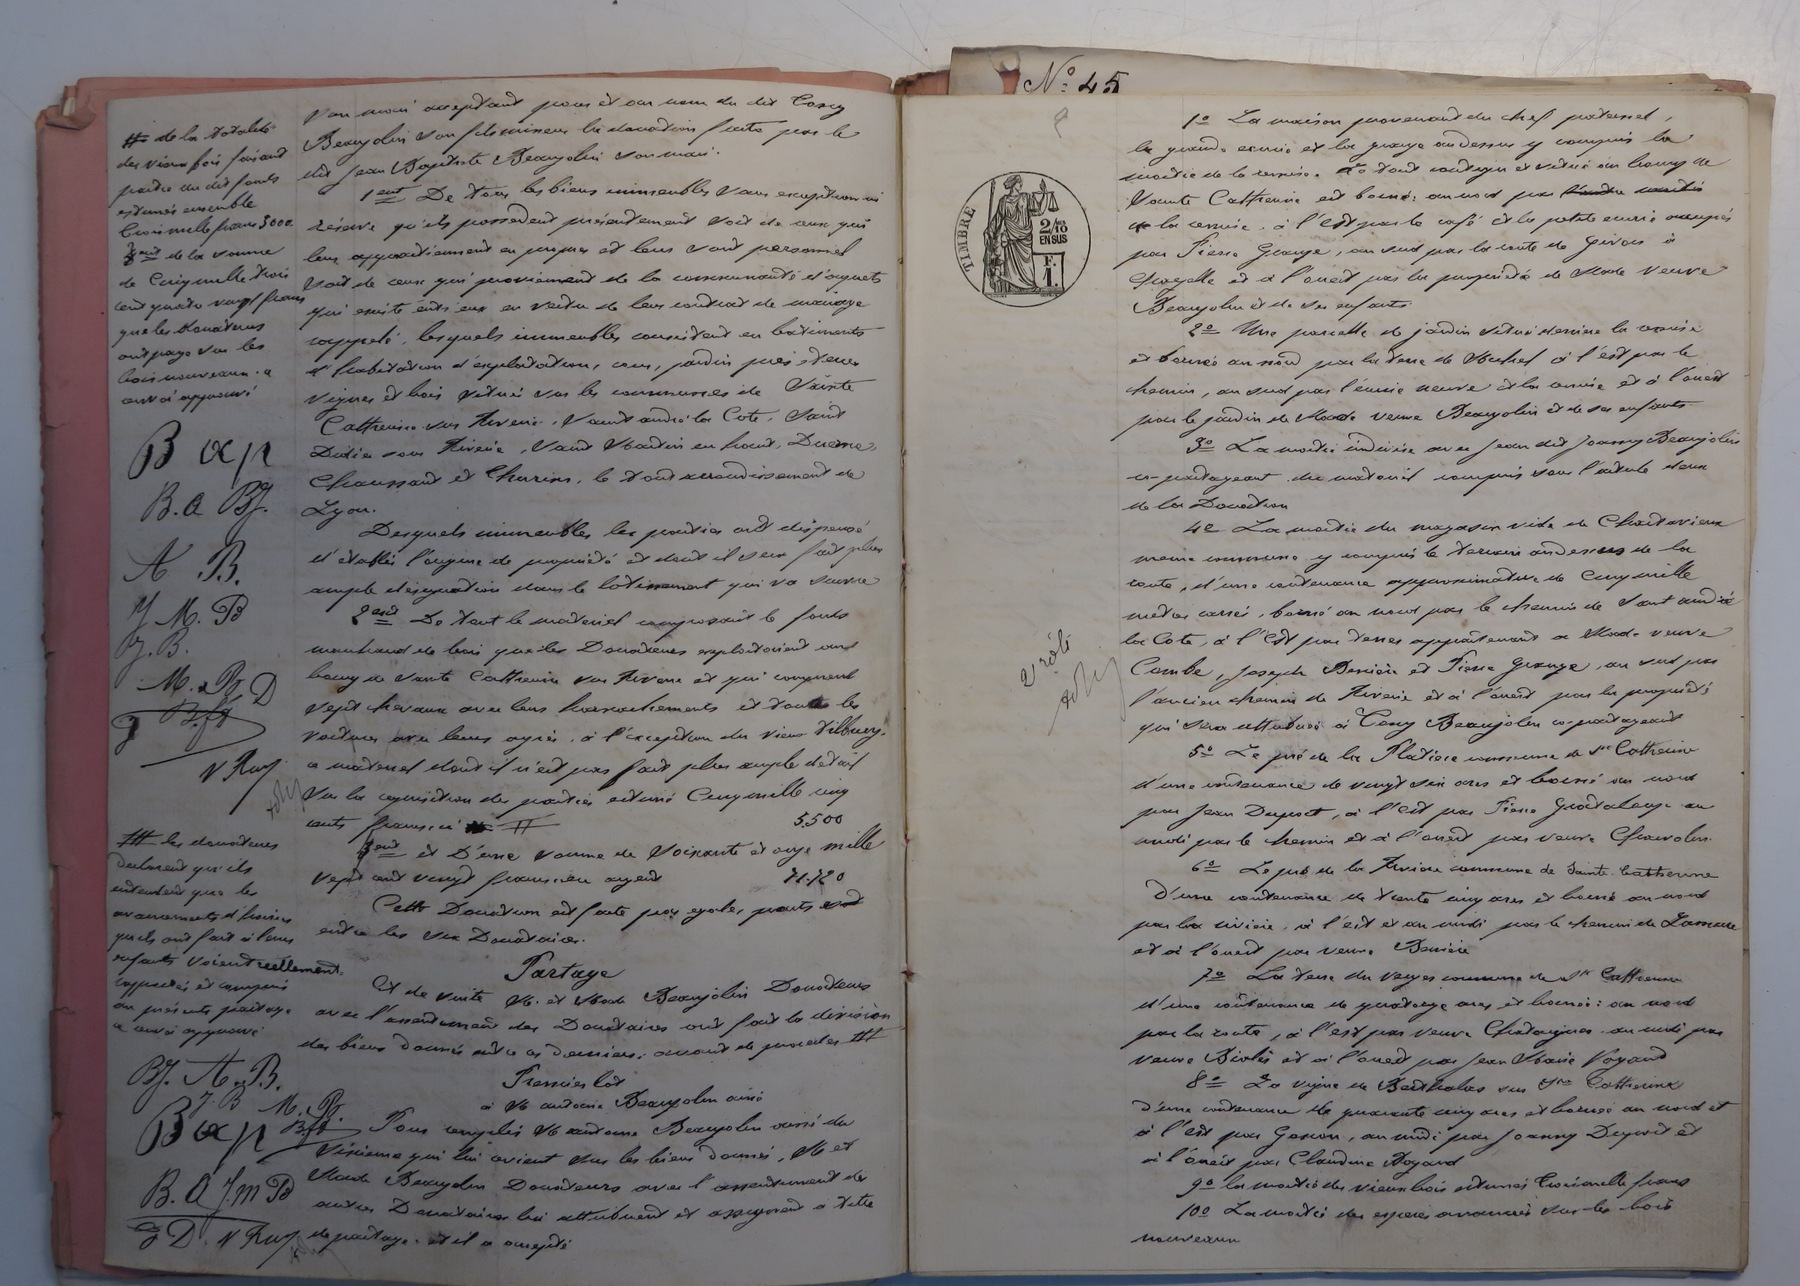 # de la totalité
des vieux bois faisant
partie du dit fonds
estimés ensemble
trois mille francs 3000
3ent de la somme
de Cinq mille trois
cent quatre vingt francs
que les Donateurs
ont payé sur les
bois nouveaux.
aussi approuvé
B ap
B. a BJ.
A. B.
J. M. B
J. B.
M. B D
# les donateurs
déclarent qu'ils
entendent que les
avancements d'hoirie
qu'ils ont fait à leurs
enfants soient réellement
rapportés et compris
au présent partage
aussi approuvé
BJ. A. B.
J. B M. B.
B ap
B. a J. M B
son mari acceptant pour et au nom du dit Tony
Beaujolin son fils mineur la donation faite par le
dit Jean Baptiste Beaujolin son mari.
1ent De tous les biens immeubles sans exception ni
réserve qu'ils possèdent présentement soit de ceux qui
leur appartiennent en propres et leur sont personnel
soit de ceux qui proviennent de la communauté d'acquets
qui existe entre eux en vertu de leur contrat de mariage
rappelé, lesquels immeubles consistent en batiments
d'habitation d'exploitation, cour, jardin prés terres
vignes et bois situés sur les communes de Sainte
Catherine sur Riverie, Saint andré la Cote, Saint
Didier sous Riverie, Saint Martin en haut, Duerne,
Chaussant et Thurins, le tout arrondissement de
Lyon.
Desquels immeubles les parties ont dispensé
d'établir l'origine de propriété et dont il sera fait plus
ample désignation dans le lotissement qui va suivre
2ent De tout le matériel composant le fonds
marchand de bois que les Donateurs exploitaient au
bourg de Sainte Catherine sur Riverie et qui comprend
sept chevaux avec leurs harnachements et toutes les
voitures avec leurs agrès, à l'exception du vieux tilbury,
ce matériel dont il n'est pas fait plus ample détail
sur la réquisition des parties estimé Cinq mille cinq
cents francs, ci # 5.500
3ent et D'une somme de Soixante et onze mille
sept cent vingt francs en argent 71.720
Cette Donation est faite par egales parts
entre les six Donataires.
Partage
Et de suite M. et Made Beaujolin Donateurs
avec l'assentiment des Donataires ont fait la division
des biens donnés entre ces derniers, avant de procéder #
Premier lot
à M antoine Beaujolin ainé
Pour remplir M antoine Beaujolin ainé du
sixième qui lui revient sur les biens donnés, M et
Made Beaujolin Donateurs avec l'assentiment des
autres Donataires lui attribuent et assignent à titre
de partage. et il a accepté
No 45
TIMBRE
2/10
EN SUS
F.
1.
2 rôle
1o La maison provenant du chef paternel,
la grande écurie et la grange au dessus y compris la
moitié de la remise. Le tout contigu et situé au bourg de
Sainte Catherine est borné: au nord par
la remise, à l'est par le café et la petite écurie occupés
par Pierre Grange, au sud par la route de Givors à
et à l'ouest par la propriété de Made Veuve
Beaujolin et de ses enfants.
2o Une parcelle de jardin situé derrière la remise
et borné au nord par la terre de à l'est par le
chemin, au sud par l'écurie neuve et la remise et à l'ouest
par le jardin de Made veuve Beaujolin et de ses enfants
3o La moitié indivise avec Jean dit Joanny Beaujolin
co-partageant du matériel compris sous l'article deux
de la Donation
4o La moitié du magasin vide de
même commune y compris le terrain au dessus de la
route, d'une contenance approximative de Cinq mille
mètres carrés, borné au nord par le chemin de Saint andré
la Cote, à l'est par terres appartenant a Made veuve
Combe, Joseph et Pierre Grange, au sud par
l'ancien chemin de Riverie et à l'ouest par la propriété
qui sera attribuée à Tony Beaujolin co-partageant
5o Le pré de la Platière commune de Ste Catherine
d'une contenance de vingt six ares et borné au nord
par Jean à l'est par Pierre au
midi par le chemin et à l'ouest par veuve
6o Le pré de la Rivière commune de Sainte Catherine
d'une contenance de trente cinq ares et borné au nord
par la rivière, à l'est et au midi par le chemin de
et à l'ouest par veuve
7o La terre du commune de Ste Catherine
d'une contenance de quatorze ares et bornée: au nord
par la route, à l'est par veuve au midi par
veuve et à l'ouest par Jean Marie
8o La vigne de sur Ste Catherine
d'une contenance de quarante cinq ares et bornée au nord et
à l'est par au midi par Joanny et
à l'ouest par Claudine
9o la moitié des vieux bois estimés trois mille francs
10o La moitié des espèces avancées sur les bois
nouveaux